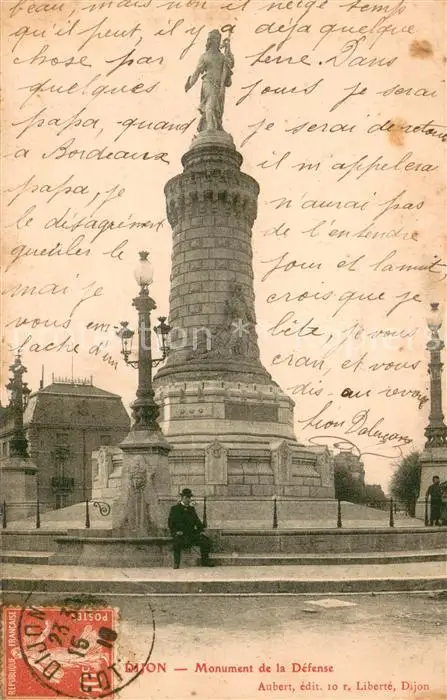 beau, mais non il neige temps
qu'il peut, il y a déjà quelque
chose par terre. Dans
quelques jours je serai
papa, quand je serai de retour
a Bordeaux il m'appelera
papa, je n'aurai pas
le désagrément de l'entendre
gueuler le jour et la nuit
mais je crois que je
vous en bête, je vous
lache d'un cran, et vous
dis au revoir
Léon
DIJON
23
15
POSTES
DIJON — Monument de la Défense
Aubert, édit. 10 r. Liberté, Dijon